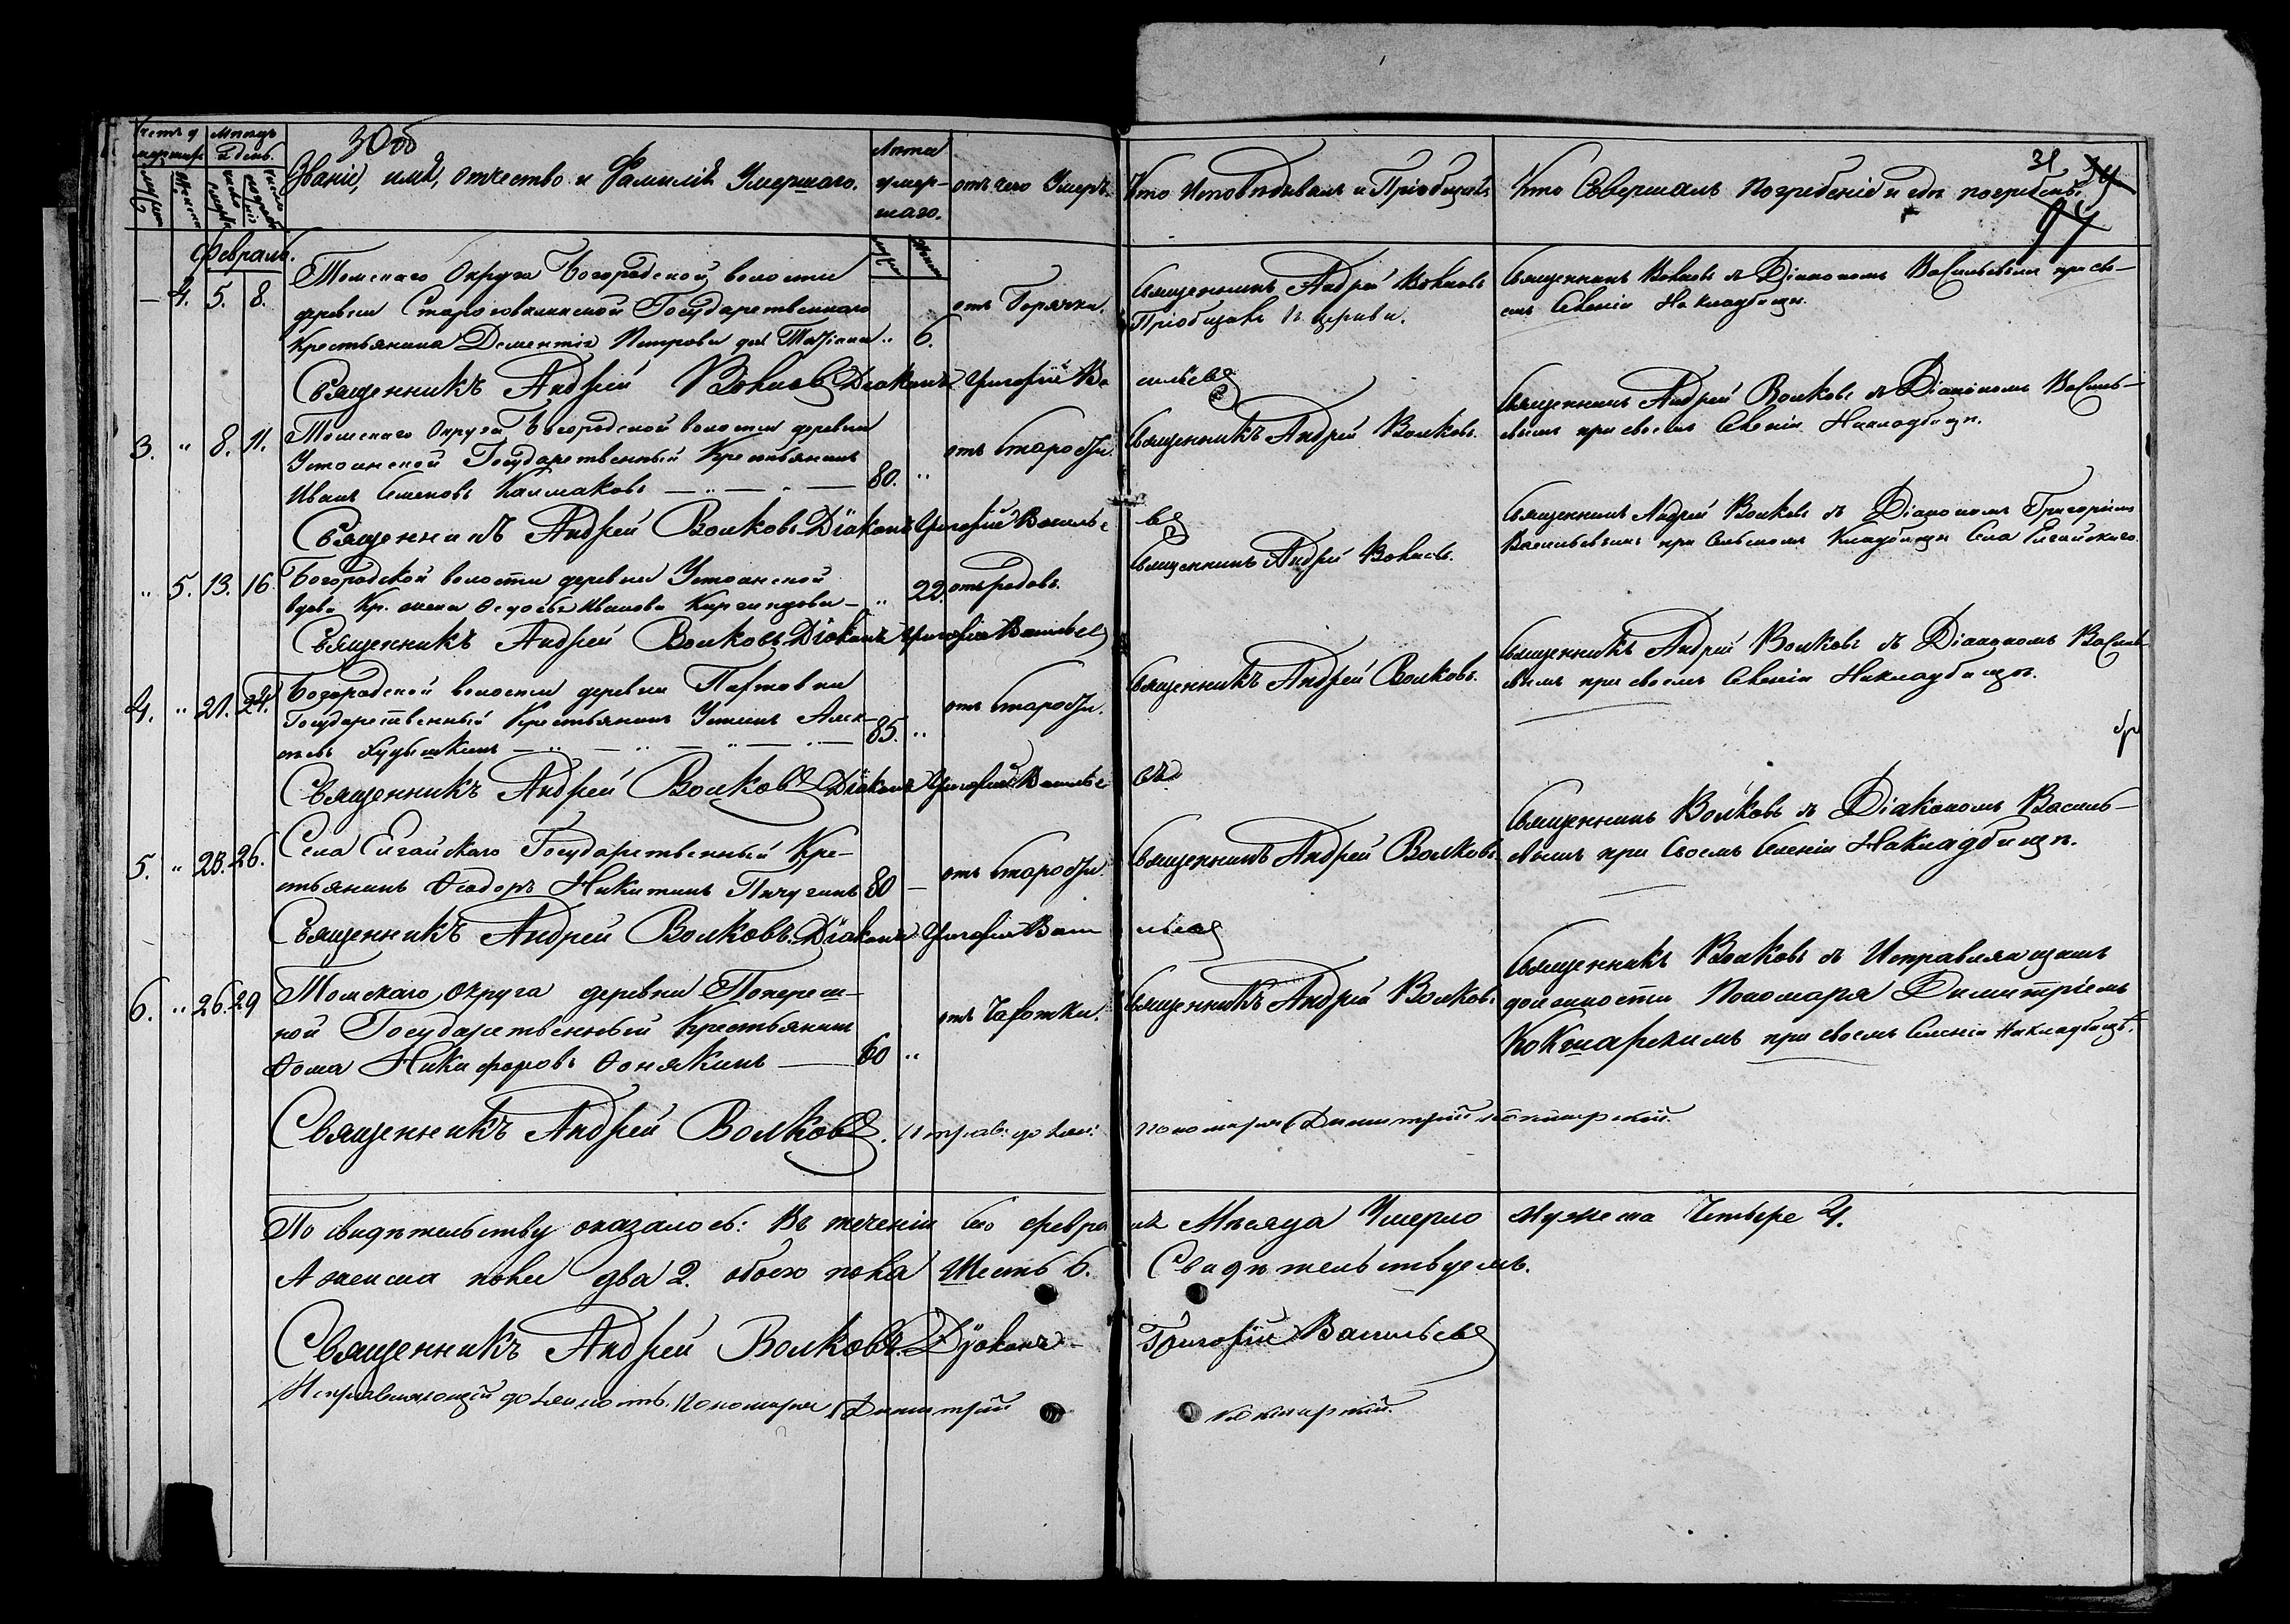 30об
Счетъ умершихъ
Мѣсяцъ и день.
Званіе, имя, отчество и Фамилія Умершаго.
Лѣта умершаго.
отъ чего Умеръ.
Кто Исповѣдывалъ и Пріобщалъ
Кто Совершалъ Погребеніе и гдѣ погребены
31
Февраль.
— 4. 5. 8.
Томскаго Округа Богородской волости
деревни Государственнаго
Крестьянина Дементія Петрова дочь „ 6.
отъ Горячки.
Священникъ Андрей Волковъ
Пріобщалъ въ церкви.
Священникъ Волковъ съ Діакономъ Васильевымъ при сво-
емъ Селеніи На кладбищѣ.
Священникъ Андрей Волковъ Діаконъ Григорій Васильевъ
3. „ 8. 11.
Томскаго Округа Богородской волости деревни
Государственный Крестьянинъ
Иванъ Семеновъ Калмаковъ — „ — „ — 80. „
отъ старости.
Священникъ Андрей Волковъ.
Священникъ Андрей Волковъ съ Діакономъ Василь-
евымъ при своемъ Селеніи На кладбищѣ.
Священникъ Андрей Волковъ Діаконъ Григорій Васильевъ
„ 5. 13. 16
Богородской волости деревни
вдова Кр. жена Ѳедосья Иванова „ 22.
отъ родовъ.
Священникъ Андрей Волковъ.
Священникъ Андрей Волковъ съ Діакономъ Григоріемъ
Васильевымъ при Сельскомъ Кладбищѣ Села Елгайскаго.
Священникъ Андрей Волковъ Діаконъ Григорій Васильевъ
4. „ 21. 24.
Богородской волости деревни
Государственный Крестьянинъ Устинъ Алек-
— „ — „ — „ — 85. „
отъ старости.
Священникъ Андрей Волковъ.
Священникъ Андрей Волковъ съ Діакономъ Василь-
евымъ при своемъ Селеніи На кладбищѣ.
Священникъ Андрей Волковъ Діаконъ Григорій Васильевъ
5. „ 23. 26.
Села Елгайскаго Государственный Кре-
стьянинъ Ѳеодоръ Никитинъ Пичугинъ 80 —
отъ старости.
Священникъ Андрей Волковъ
Священникъ Волковъ съ Діакономъ Василь-
евымъ при Своемъ Селеніи На кладбищѣ.
Священникъ Андрей Волковъ. Діаконъ Григорій Васильевъ
6. „ 26. 29
Томскаго Округа деревни Попереч-
ной Государственный Крестьянинъ
Ѳома Никифоровъ Ѳонякинъ — 60 „
отъ Чахотки.
Священникъ Андрей Волковъ
Священникъ Волковъ съ Исправляющимъ
должность Пономаря Димитріемъ
Кокшарскимъ при своемъ Селеніи На кладбищѣ.
Священникъ Андрей Волковъ. Исправ: долж: пономаря Димитрій Кокшарскій.
По свидѣтельству оказалось: Въ теченіи сего февраля Мѣсяца Умерло Мужеска Четыре 4.
А женска пола два 2. обоего пола Шесть 6. Свидѣтельствуемъ.
Священникъ Андрей Волковъ. Діаконъ Григорій Васильевъ
Исправляющій должность Пономаря Димитрій Кокшарскій.